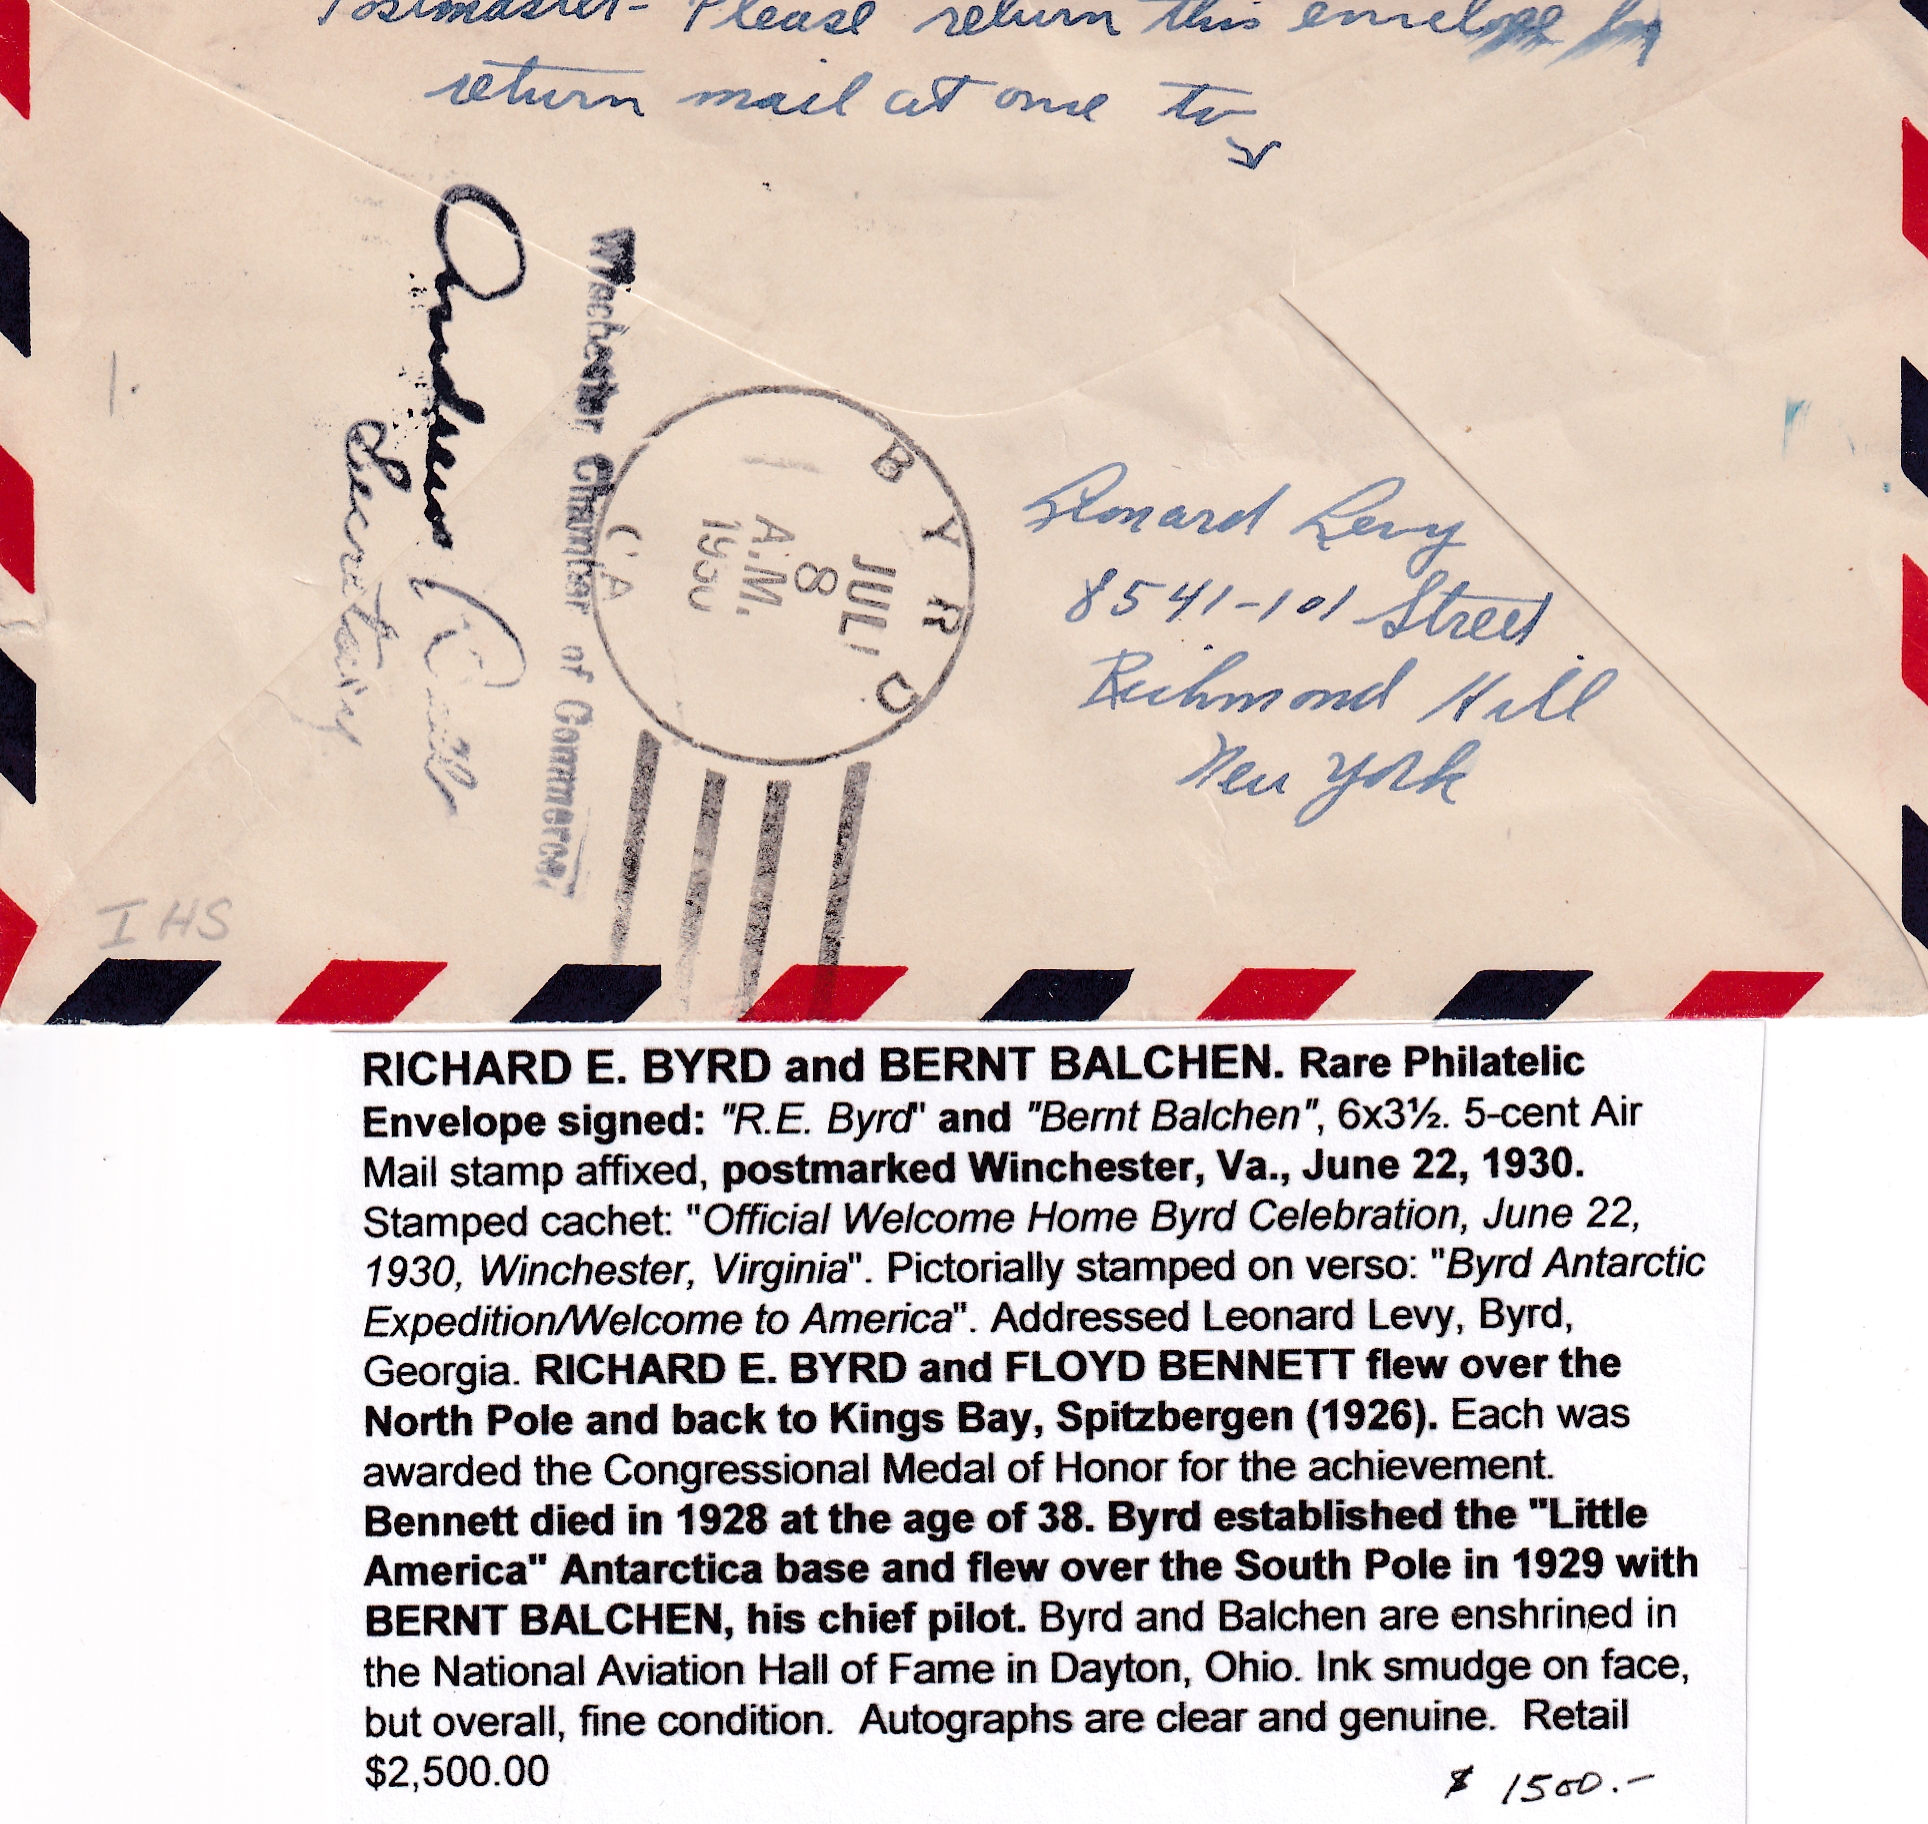 Postmaster- Please return this envelope by
return mail at once to
Leonard Levy
8541-101 Street
Richmond Hill
New York
Winchester Chamber of Commerce
Secretary
BYRD
JUL
8
A.M.
1930
GA
I HS
RICHARD E. BYRD and BERNT BALCHEN. Rare Philatelic
Envelope signed: "R.E. Byrd" and "Bernt Balchen", 6x3½. 5-cent Air
Mail stamp affixed, postmarked Winchester, Va., June 22, 1930.
Stamped cachet: "Official Welcome Home Byrd Celebration, June 22,
1930, Winchester, Virginia". Pictorially stamped on verso: "Byrd Antarctic
Expedition/Welcome to America". Addressed Leonard Levy, Byrd,
Georgia. RICHARD E. BYRD and FLOYD BENNETT flew over the
North Pole and back to Kings Bay, Spitzbergen (1926). Each was
awarded the Congressional Medal of Honor for the achievement.
Bennett died in 1928 at the age of 38. Byrd established the "Little
America" Antarctica base and flew over the South Pole in 1929 with
BERNT BALCHEN, his chief pilot. Byrd and Balchen are enshrined in
the National Aviation Hall of Fame in Dayton, Ohio. Ink smudge on face,
but overall, fine condition. Autographs are clear and genuine. Retail
$2,500.00
$ 1500.-